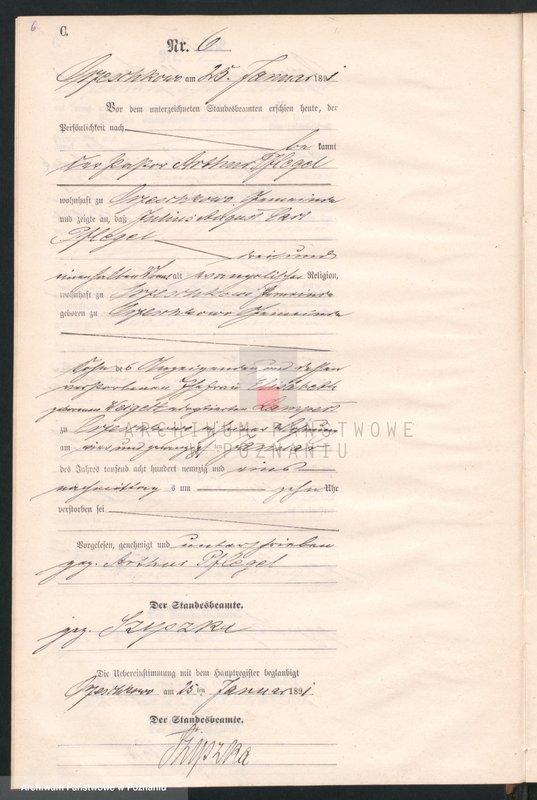 6
C.
Nr. 6
am 25. Januar 1891
Vor dem unterzeichneten Standesbeamten erschien heute, der
Persönlichkeit nach
be kannt
der Pastor Arthur Pflegel
wohnhaft zu Gemeinde
und zeigte an, daß Julius August Carl
Pflegel
drei und
alt evangelischer Religion,
wohnhaft zu Gemeinde
geboren zu Gemeinde
Sohn des Anzeigenden und dessen
verstorbenen Ehefrau Elisabeth
geborenen Weigelt adoptierten
zu in seiner Wohnung
am vier und zwanzigsten ten Januar
des Jahres tausend acht hundert neunzig und eins
nachmittags um zehn Uhr
verstorben sei
Vorgelesen, genehmigt und unterschrieben
gez. Arthur Pflegel
Der Standesbeamte.
gez. Szyszka
Die Uebereinstimmung mit dem Hauptregister beglaubigt
am 25 ten Januar 1891.
Der Standesbeamte.
Szyszka
ARCHIWUM PAŃSTWOWE
W POZNANIU
Archiwum Państwowe w Poznaniu